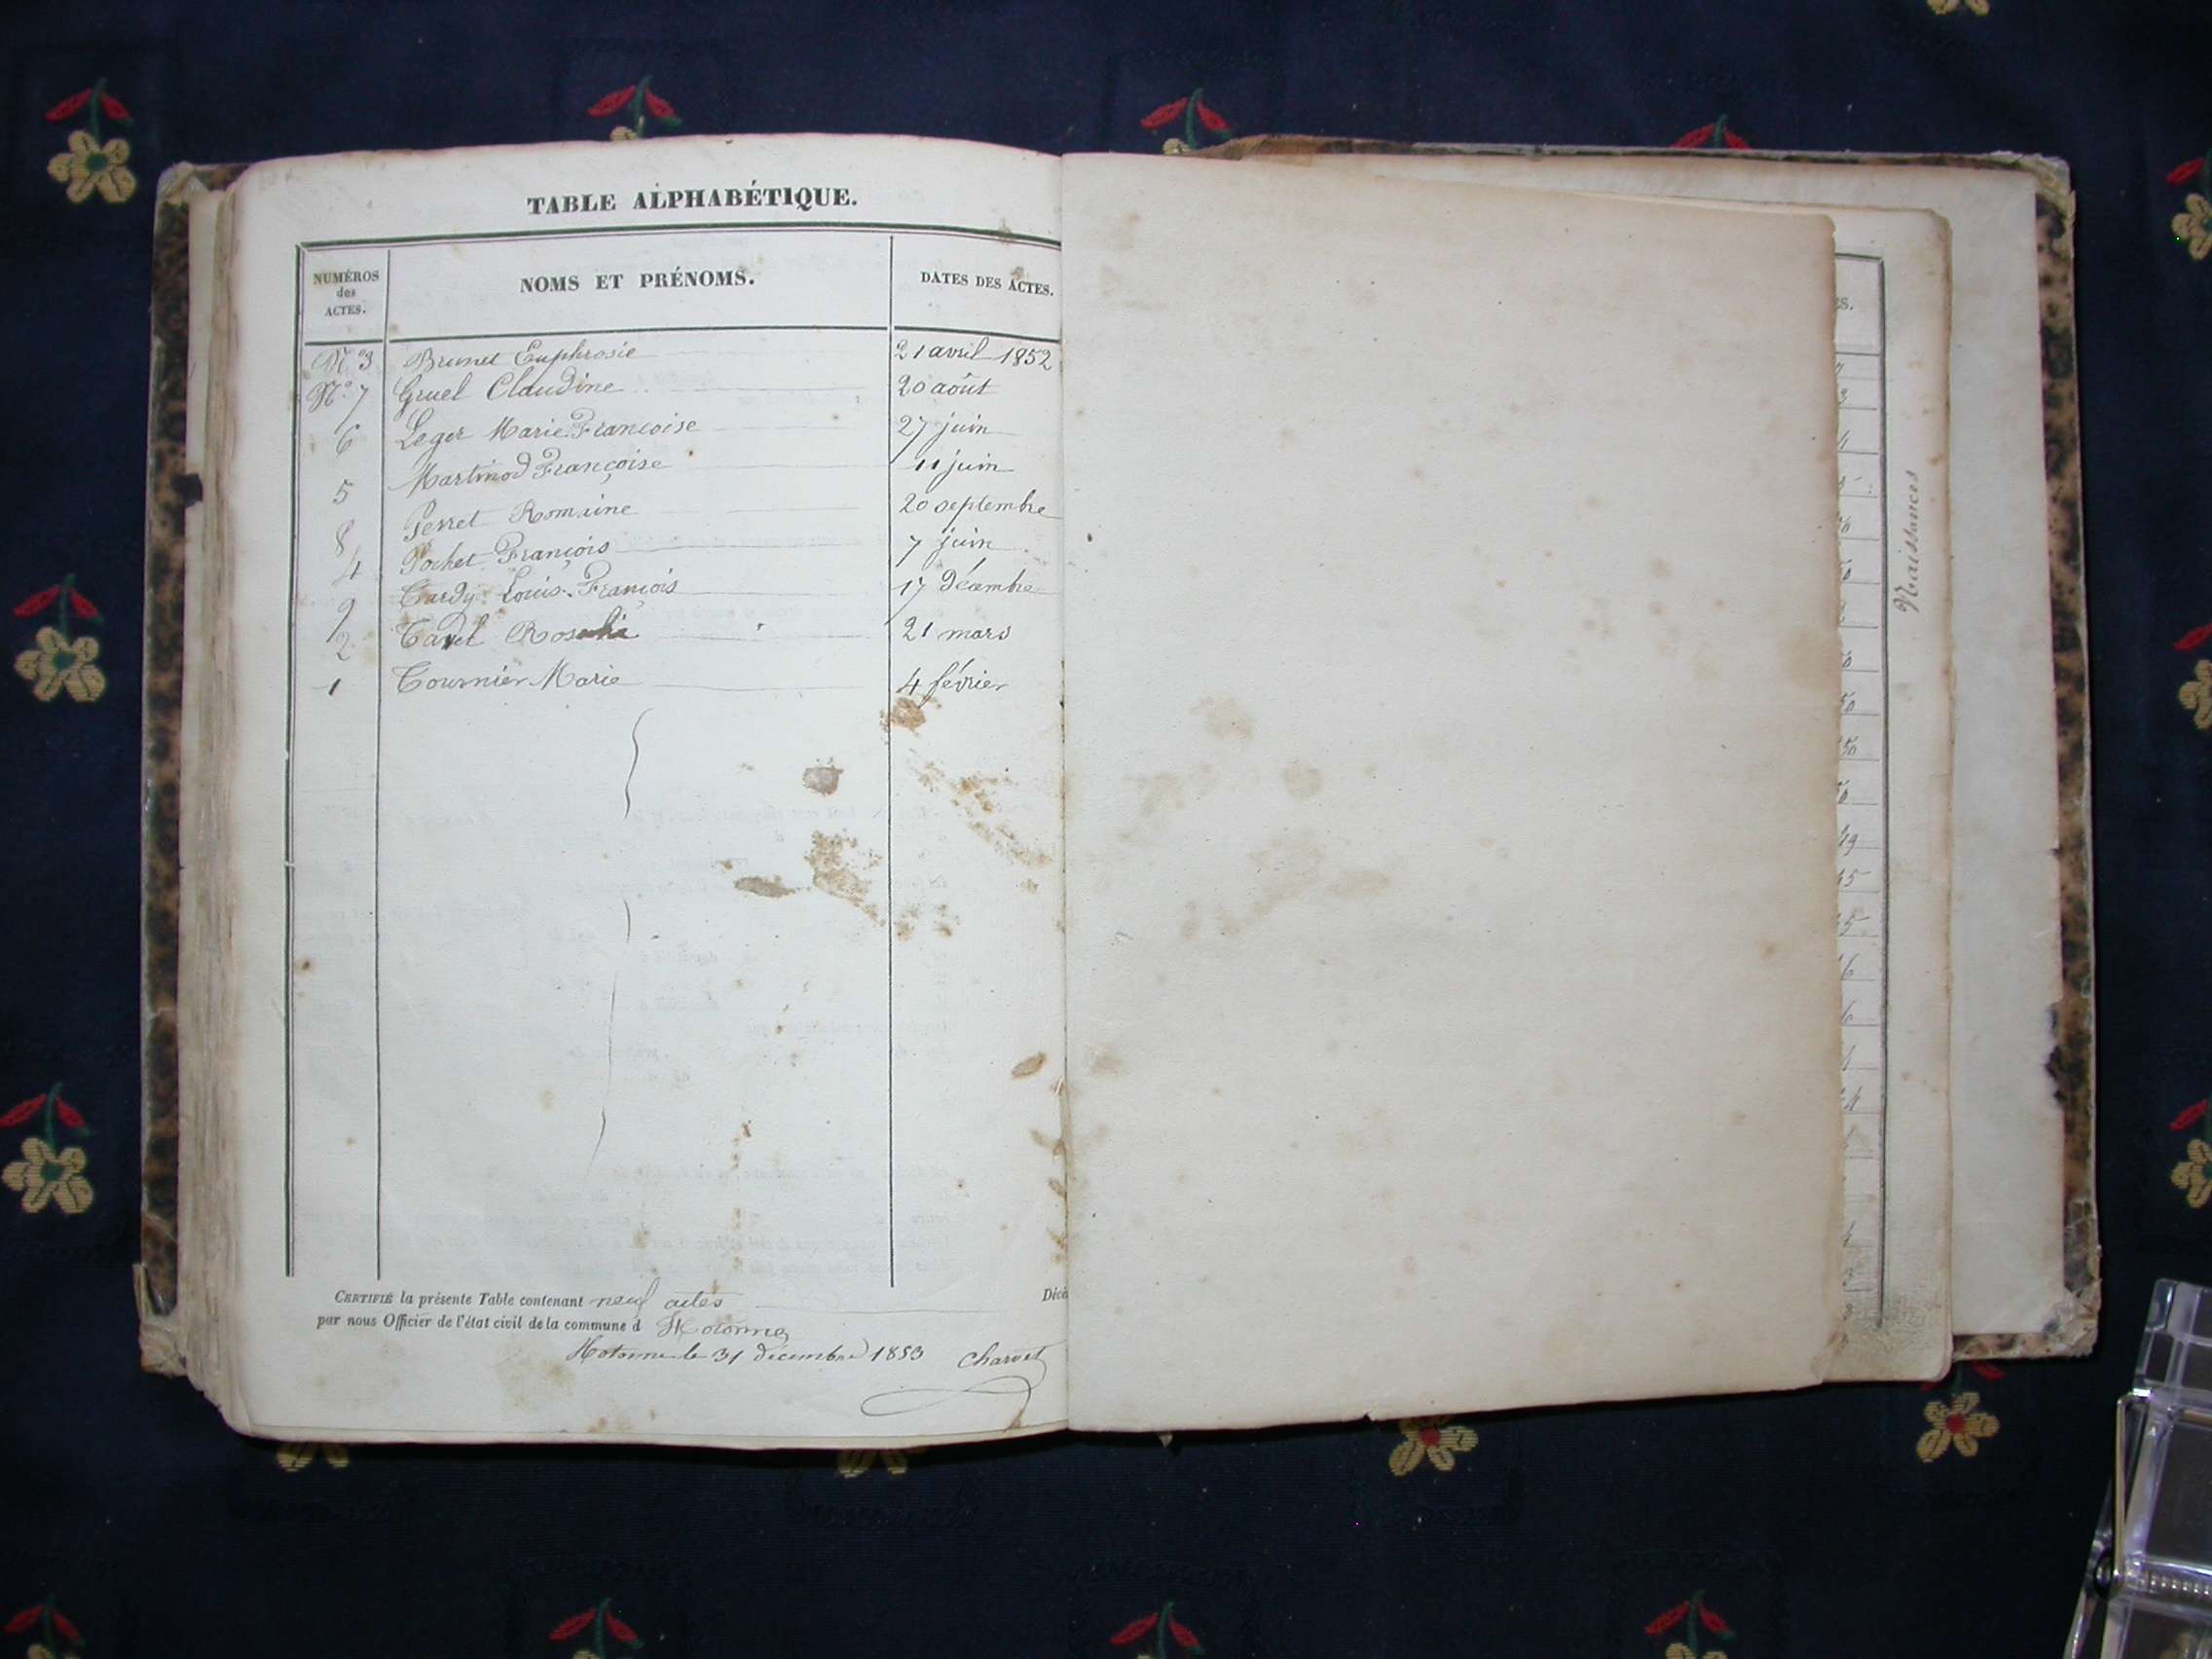 TABLE ALPHABÉTIQUE.
NUMÉROS des ACTES. NOMS ET PRÉNOMS. DATES DES ACTES.
N.º 3 Brunet Euphrosie 21 avril 1852
N.º 7 Gruel Claudine 20 août
6 Leger Marie Francoise 27 juin
5 Martinod Françoise 11 juin
8 Perret Romaine 20 septembre
4 Pochet François 7 juin
9 Tardy Louis-François 17 Décembre
2 21 mars
1 Tournier Marie 4 février
CERTIFIÉ la présente Table contenant neuf actes
par nous Officier de l'état civil de la commune d Hotonnes
Hotonne le 31 décembre 1853 Charvet
Naissances